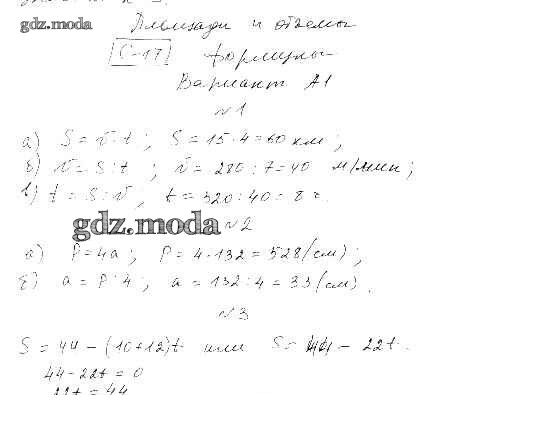 gdz.moda Площади и объемы
С-17 Формулы
Вариант А1
№1
а) S = v · t ; S = 15 · 4 = 60 км ;
б) v = S : t ; v = 280 : 7 = 40 м/мин ;
в) t = S : v ; t = 320 : 40 = 8 ч.
gdz.moda №2
а) P = 4a ; P = 4 · 132 = 528 (см) ;
б) a = P : 4 ; a = 132 : 4 = 33 (см) .
№3
S = 44 - (10+12)t или S = 44 - 22t .
44 - 22t = 0
22t = 44